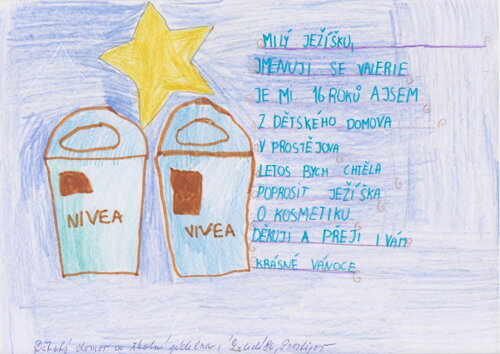 MILÝ JEŽÍŠKU,
JMENUJI SE VALERIE
JE MI 16 ROKŮ A JSEM
Z DĚTSKÉHO DOMOVA
V PROSTĚJOVA
LETOS BYCH CHTĚLA
POPROSIT JEŽÍŠKA
O KOSMETIKU.
DĚKUJI A PŘEJI I VÁM
KRÁSNÉ VÁNOCE
NIVEA
NIVEA
Dětský domov a školní jídelna,